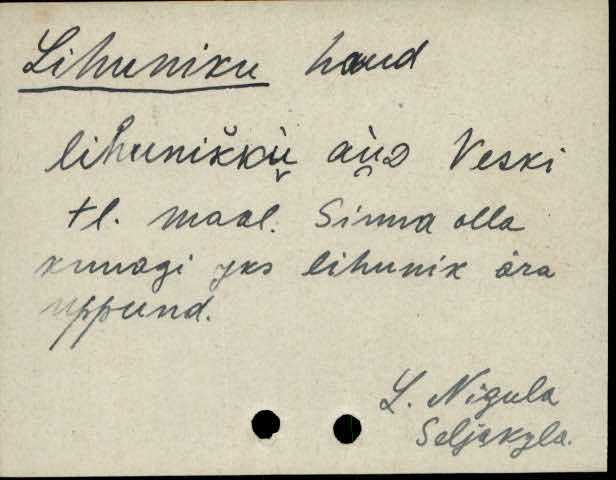 Lihuniku haud
lihunikkù aùD Veski
tl. maal. Sinna olla
kunagi yks lihunik ära
uppund.
L. Nigula
Seljakyla.